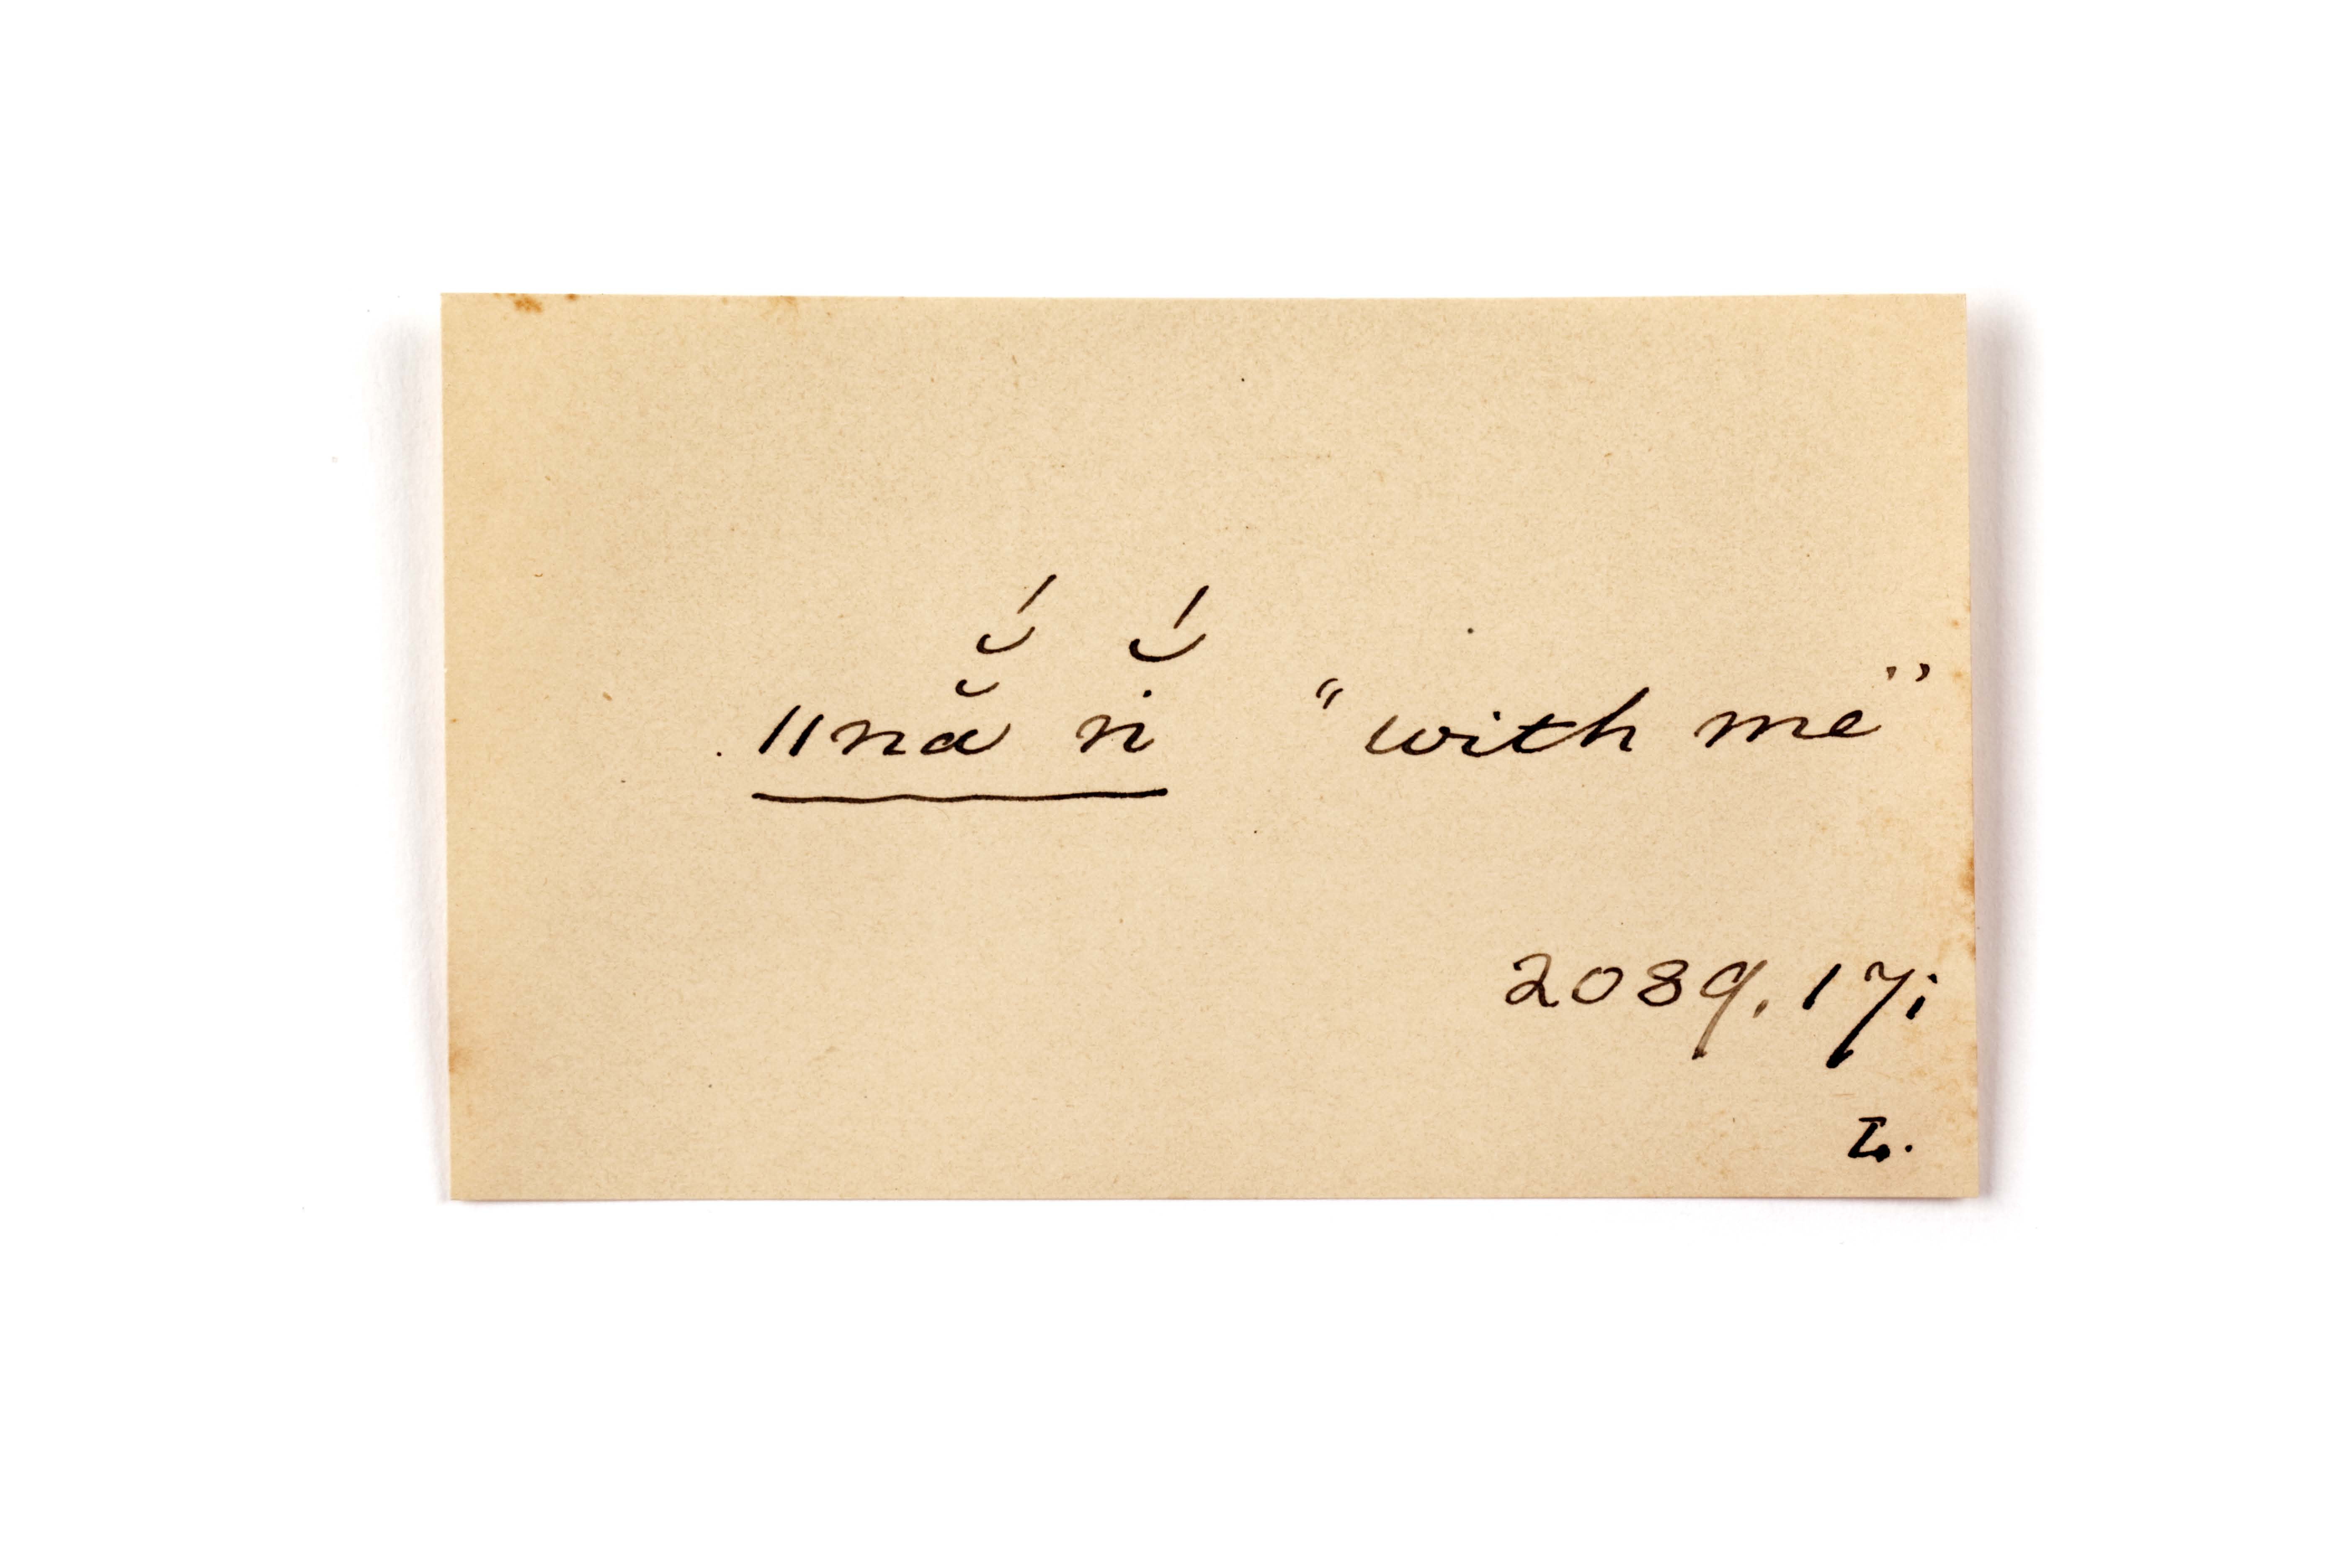 ǁnă̆́ n̆́i "with me"
2089. 17;
L.